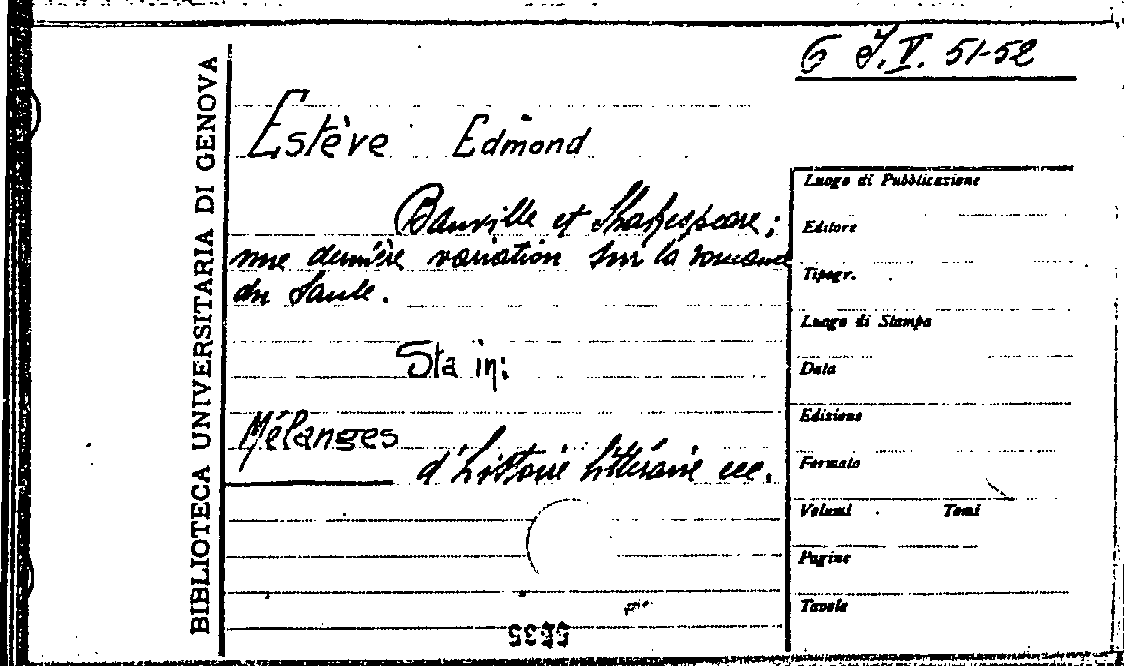 6 J.V. 51-52
BIBLIOTECA UNIVERSITARIA DI GENOVA
Estève Edmond
Banville et Shakespeare;
une dernière variation sur la romance
du Saule.
Sta in:
Mélanges
d'histoire littéraire ecc.
Luogo di Pubblicazione
Editore
Tipogr.
Luogo di Stampa
Data
Edizione
Formato
Volumi Tomi
Pagine
Tavole